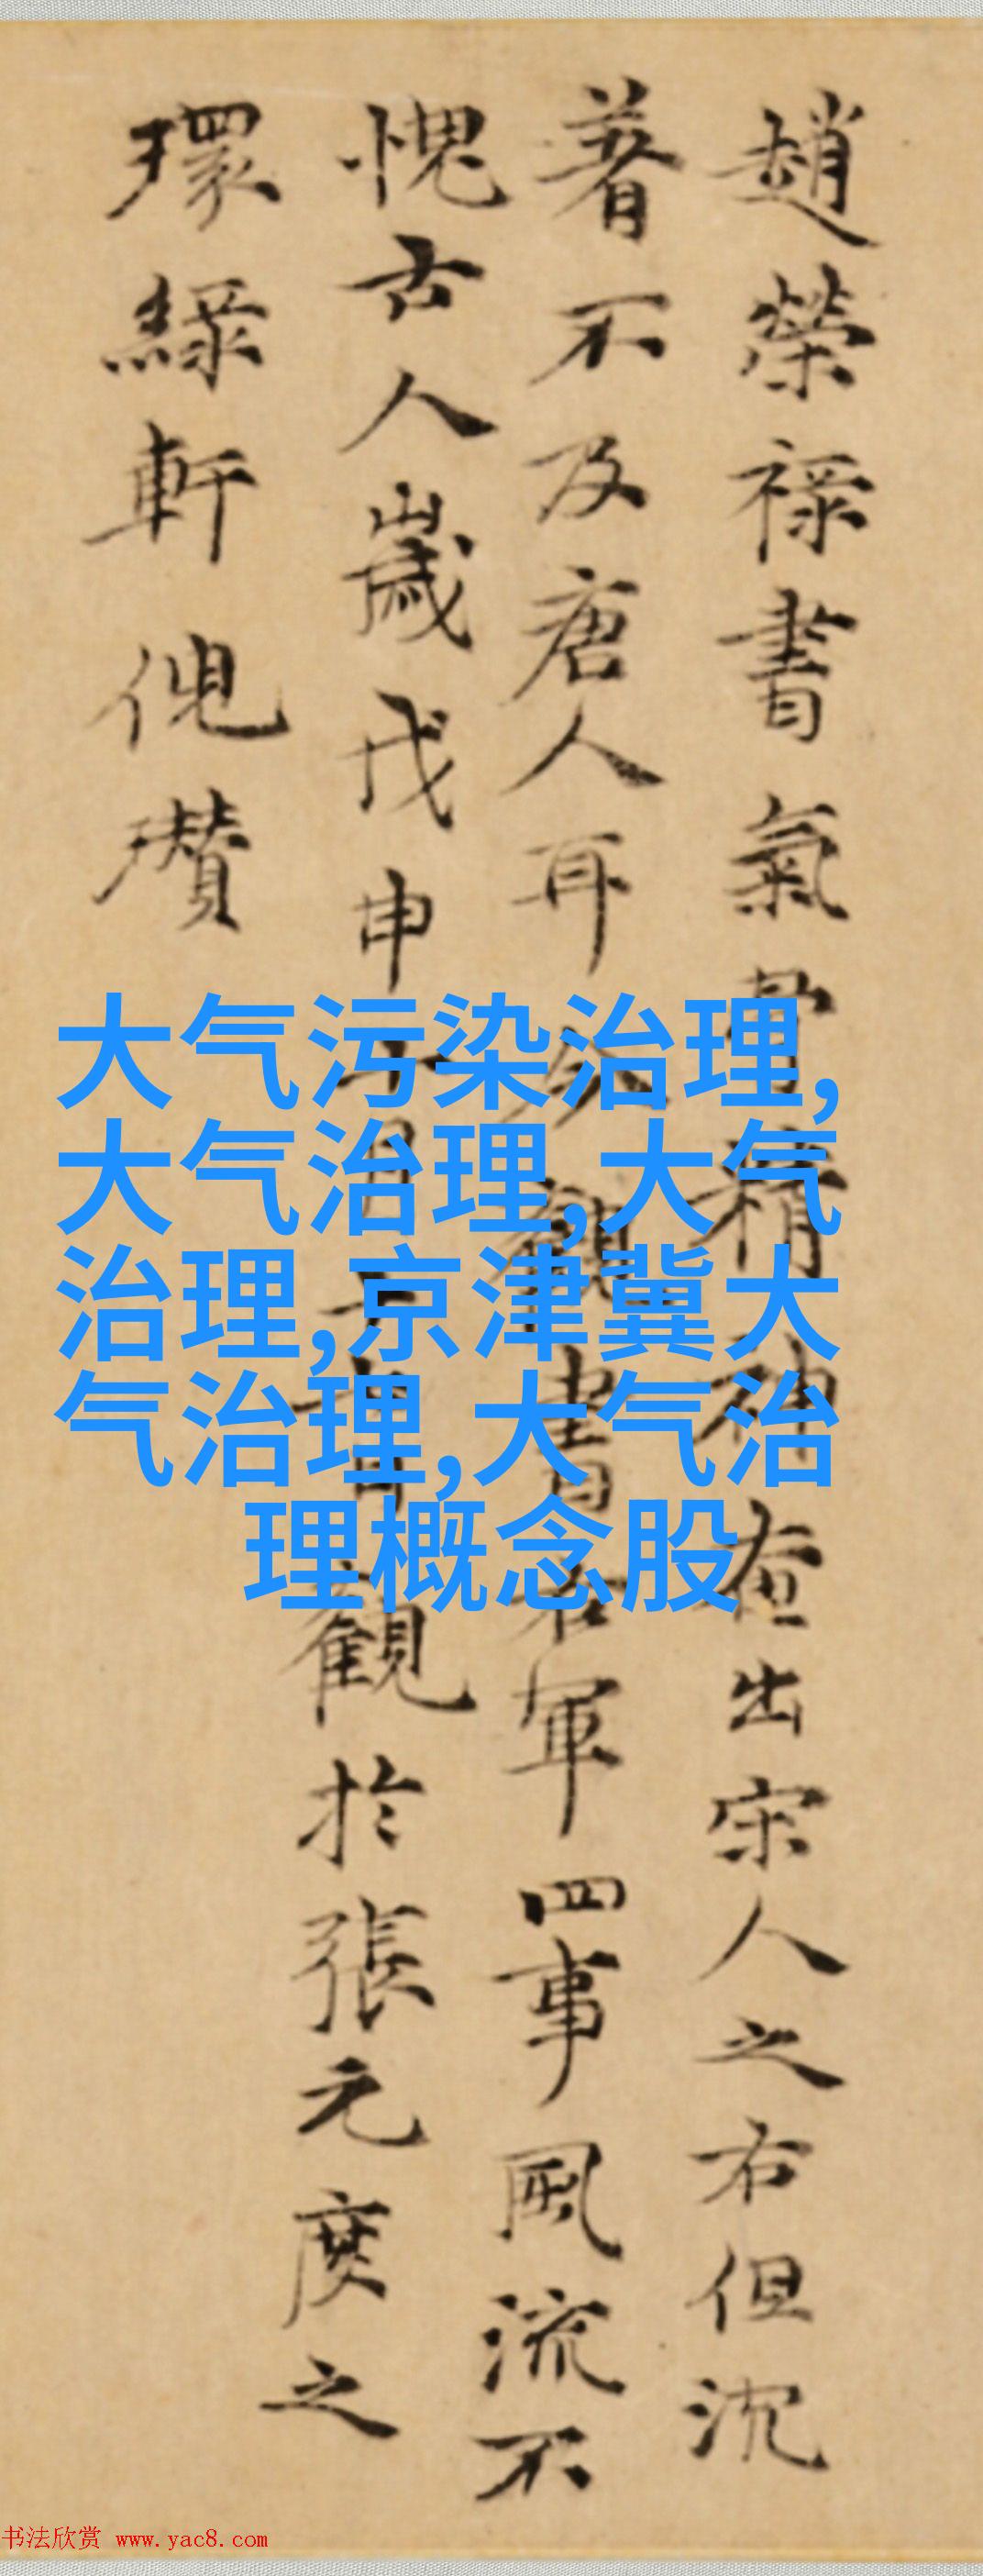 趙榮祿書氣骨精神盡出宋人之右但沈
著不及唐人耳今觀書右軍四事風流不
愧古人歲戊申十月十七日觀於張元度之
環綠軒倪瓚
大气污染治理,
大气治理,大气
治理,京津冀大
气治理,大气治
理概念股
书法欣赏 www.yac8.com